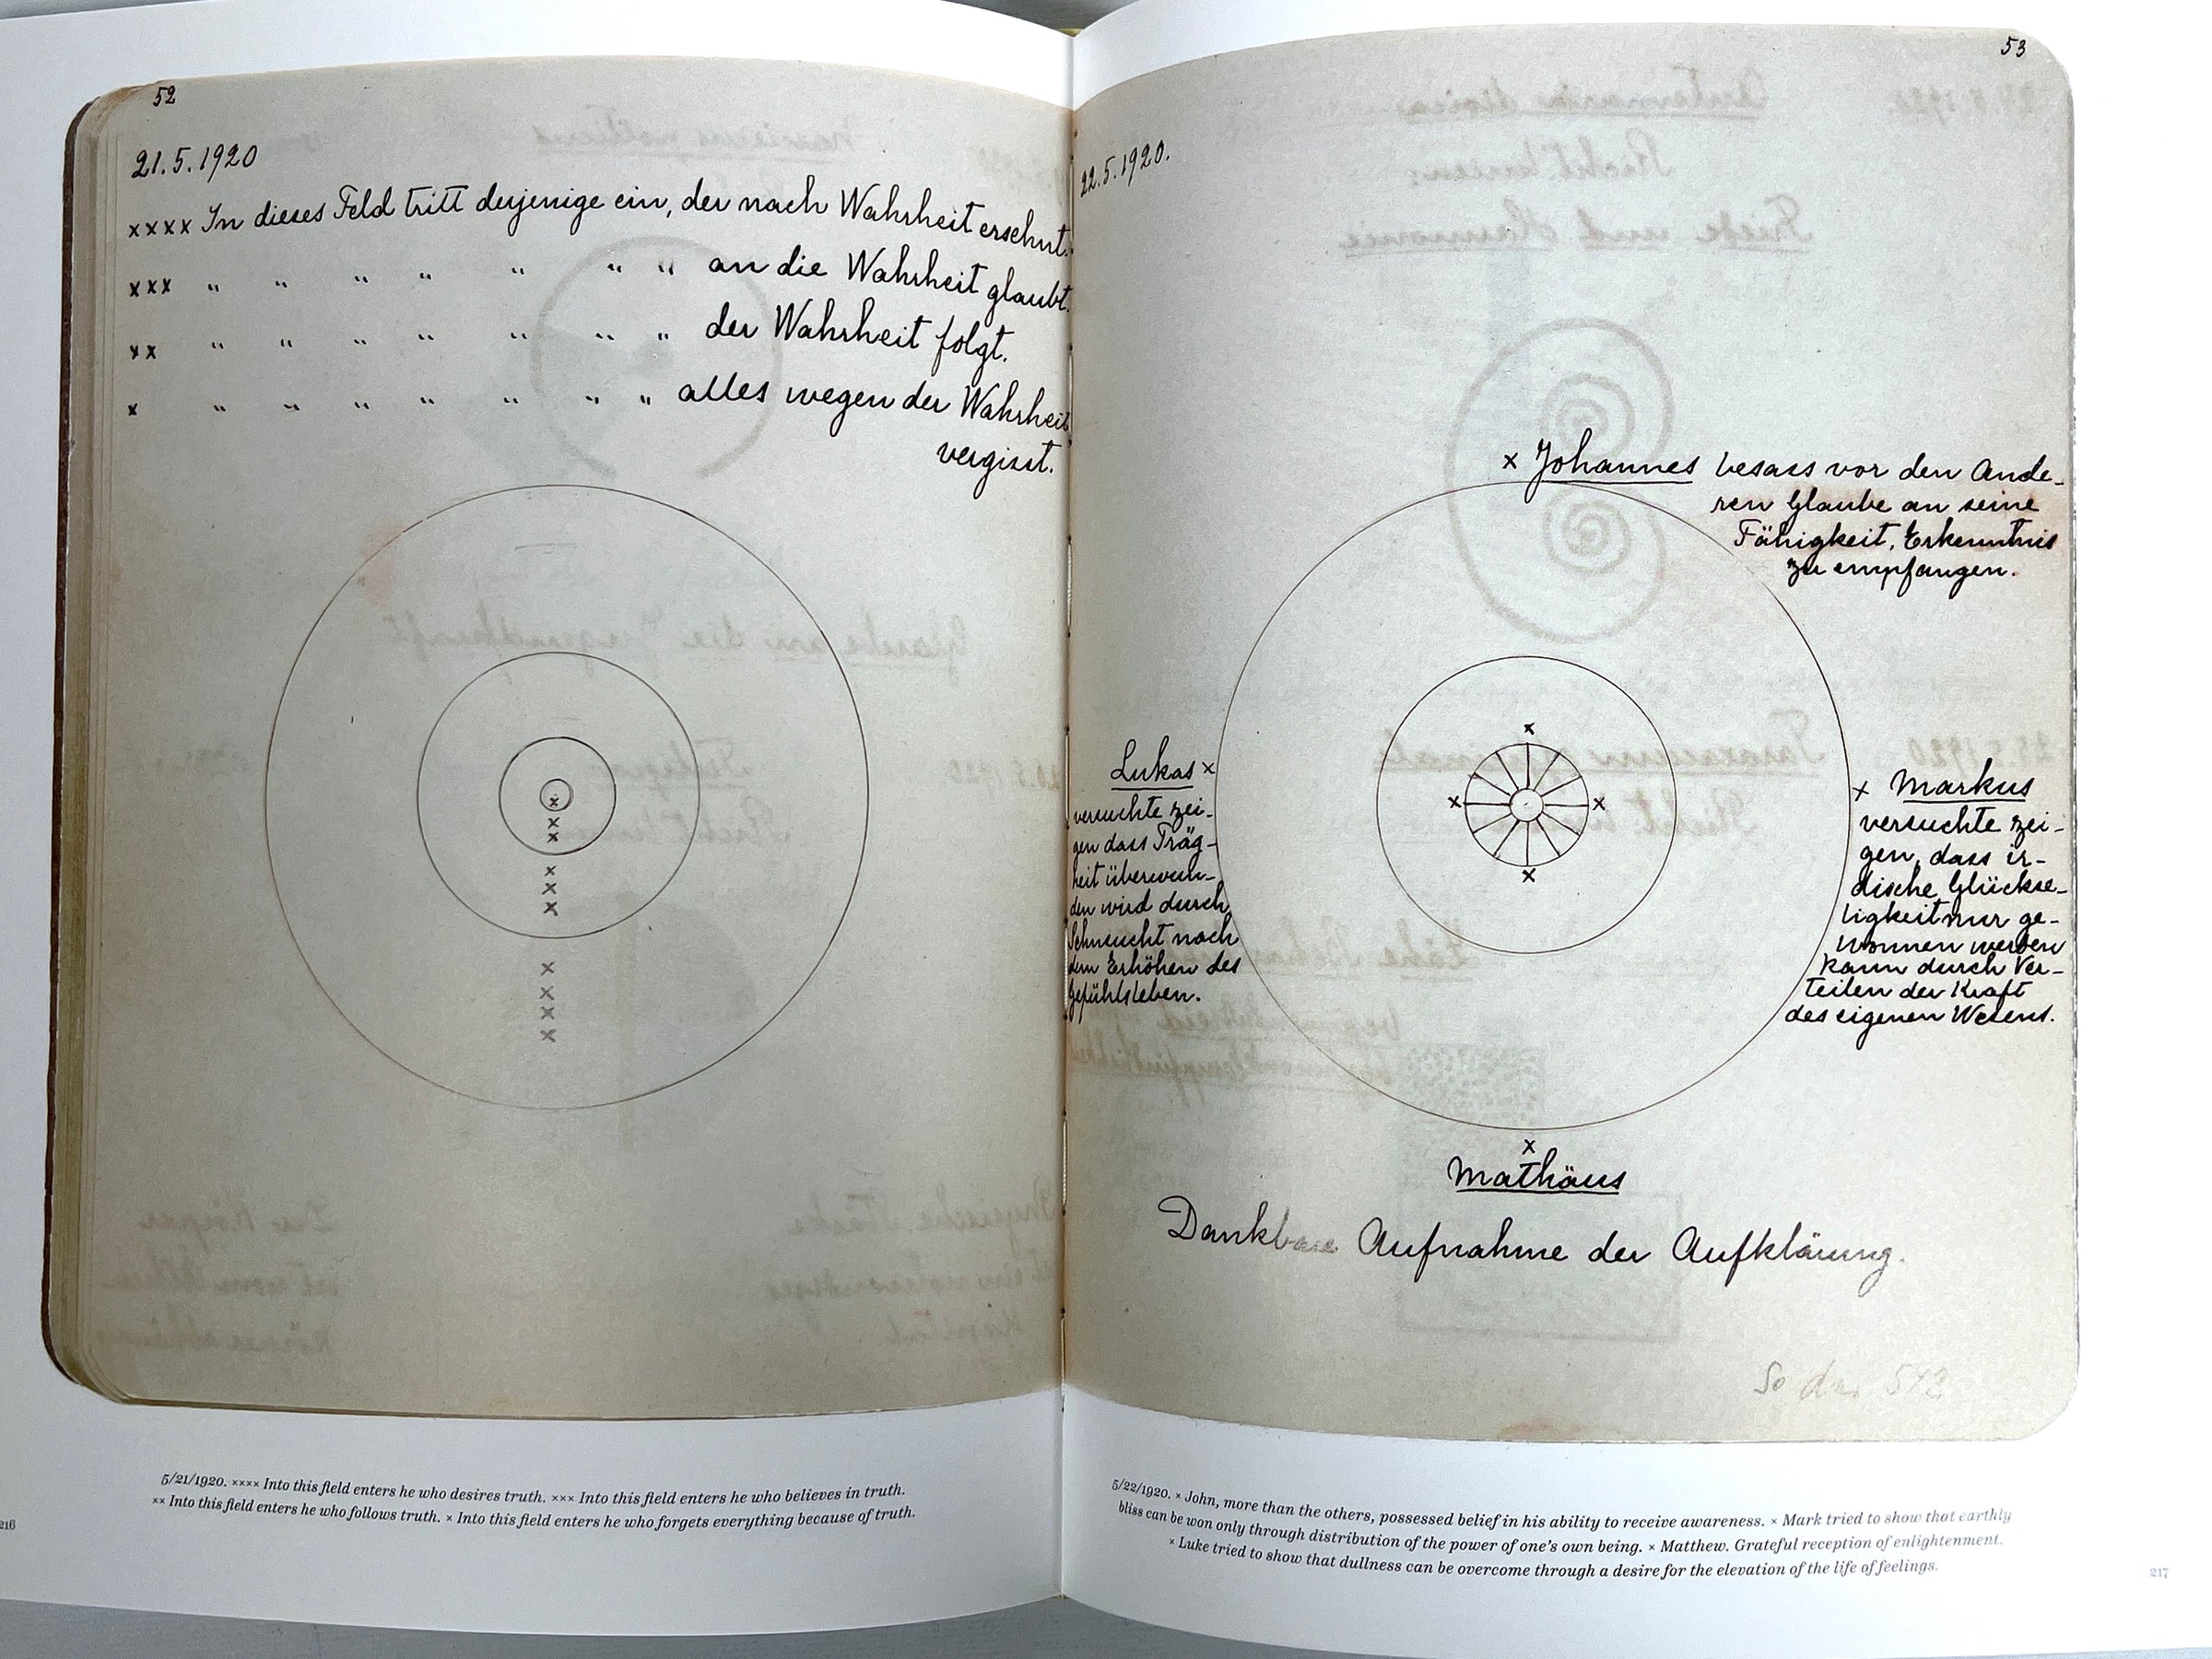 52
21.5.1920
xxxx In dieses Feld tritt derjenige ein, der nach Wahrheit ersehnt.
xxx " " " " " " " an die Wahrheit glaubt.
xx " " " " " " " der Wahrheit folgt.
x " " " " " " " alles wegen der Wahrheit
vergisst.
x
x
x
x
x
x
x
x
x
x
5/21/1920. ×××× Into this field enters he who desires truth. ××× Into this field enters he who believes in truth.
×× Into this field enters he who follows truth. × Into this field enters he who forgets everything because of truth.
216
53
22.5.1920.
x Johannes besass vor den Ande-
ren Glaube an seine
Fähigkeit, Erkenntnis
zu empfangen.
x
x x
x
Lukas x
versuchte zei-
gen dass Träg-
heit überwun-
den wird durch
Sehnsucht nach
dem Erhöhen des
Gefühlsleben.
x Markus
versuchte zei-
gen, dass ir-
dische Glückse-
ligkeit nur ge-
wonnen werden
kann durch Ver-
teilen der Kraft
des eigenen Wesens.
x
Mathäus
Dankbare Aufnahme der Aufkläung.
5/22/1920. × John, more than the others, possessed belief in his ability to receive awareness. × Mark tried to show that earthly
bliss can be won only through distribution of the power of one's own being. × Matthew. Grateful reception of enlightenment.
× Luke tried to show that dullness can be overcome through a desire for the elevation of the life of feelings.
217